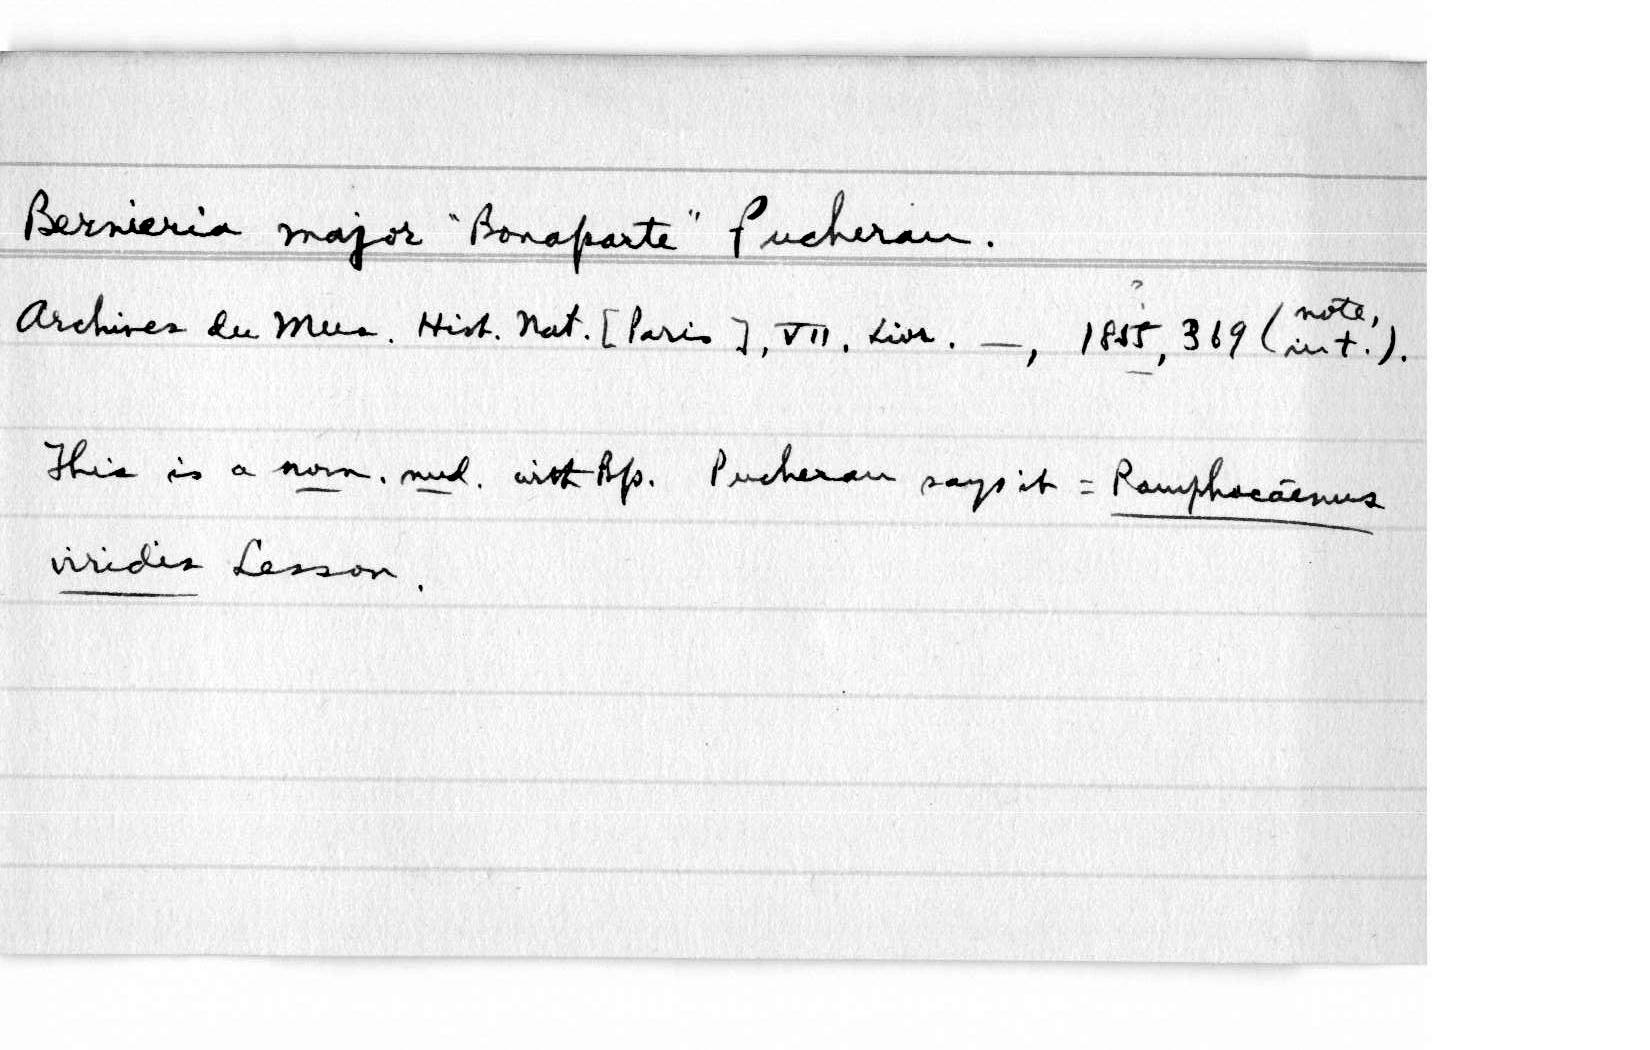 Bernieria major "Bonaparte" Pucheran.
Archives du Mus. Hist. Nat. [Paris], VII, Livr. —, 1855?, 369 (note, in t.).
This is a nom. nud. with Bp. Pucheran says it = Ramphocaenus
viridis Lesson.